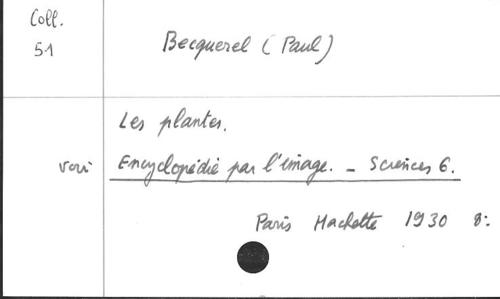 Coll.
51
Becquerel (Paul)
Les plantes.
voir Encyclopédie par l'image. - Sciences 6.
Paris Hachette 1930 8: